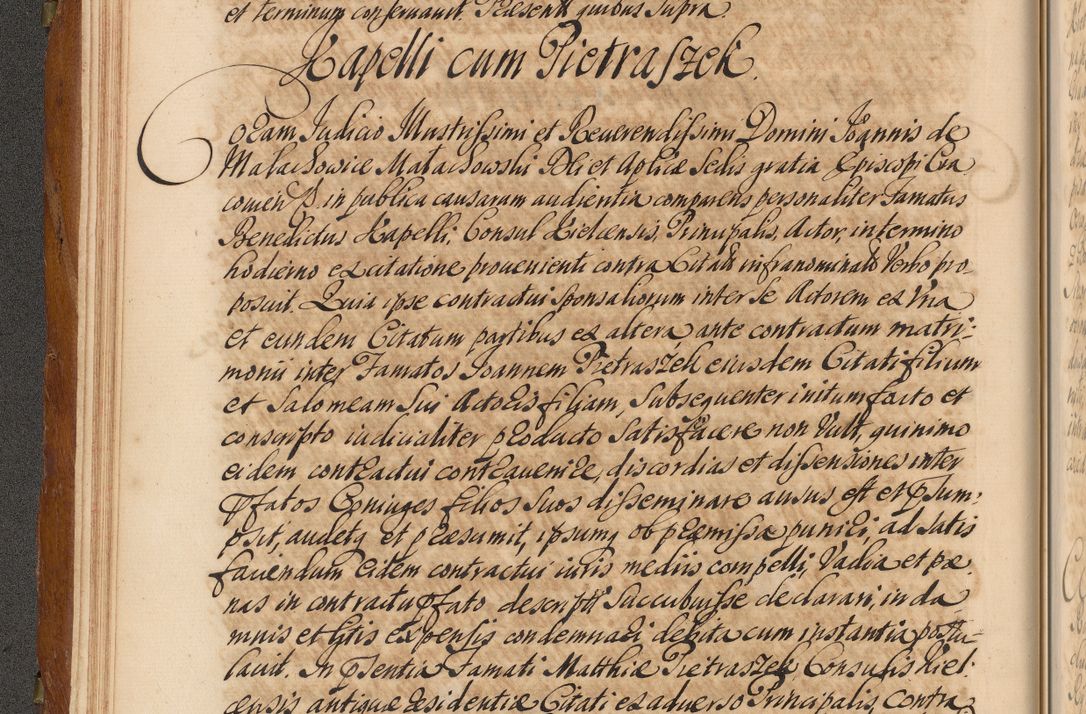 et terminum conservavit. Præsentt quibus supra.
Kapelli cum Pietraszek.
Coram Judicio Illustrissimi et Reverendissimi Domini Joannis de
Małachowice Małachowski Dei et Aplicæ Sedis gratia Episcopi Cra
covien in publica causarum audientia comparens personaliter Famatus
Benedictus Kapelli, Consul Kielcensis, Principalis, Actor, in termino
hodierno ex citatione provenienti contra Citatū infranominatū Verbo pro
posuit. Quia ipse contractui sponsaliorum inter se Actorem ex Vna
et eundem Citatum partibus ex altera, ante contractum matri-
monii inter Famatos Joannem Pietraszek eiusdem Citati filium
et Salomeam sui Actoris filiam, subsequenter initum facto et
conscripto iudicialiter producto satisfacere non Vult, quinimo
eidem contractui contravenire, discordias et dissensiones inter
pfatos Coniuges filios suos disseminare ausus est et psum-
psit, audetq et præsumit, ipsumq ob præmissa puniri, ad satis
faciendum eidem contractui iuris mediis compelli, Vadia et pæ
nas in contractu pfato descriptt succubuisse declarari, in da
mnis et litis expensis condemnari debita cum instantia postu-
lavit. In psentia Famati Matthiæ Pietraszek Consulis Kiel-
censis antiquæ residentiæ Citati ex adverso Principalis, contra